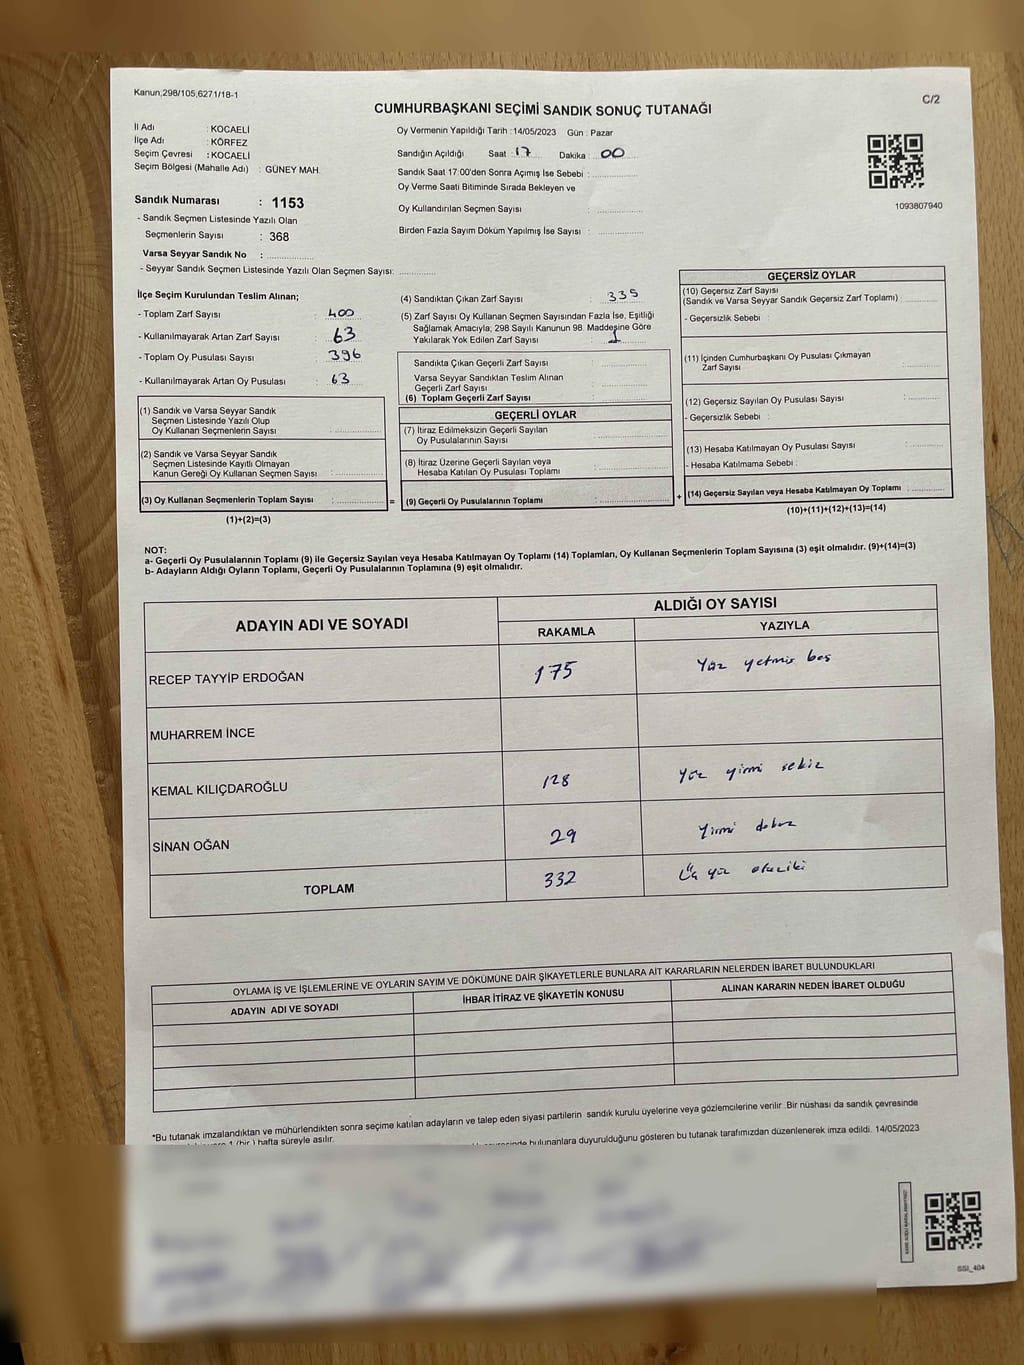 Kanun,298/105,6271/18-1
C/2
CUMHURBAŞKANI SEÇİMİ SANDIK SONUÇ TUTANAĞI
İl Adı : KOCAELİ
İlçe Adı : KÖRFEZ
Seçim Çevresi : KOCAELİ
Seçim Bölgesi (Mahalle Adı) : GÜNEY MAH.
Oy Vermenin Yapıldığı Tarih :14/05/2023 Gün : Pazar
Sandığın Açıldığı Saat : 17 Dakika : 00
Sandık Saat 17:00'den Sonra Açımış İse Sebebi :
Oy Verme Saati Bitiminde Sırada Bekleyen ve
Oy Kullandırılan Seçmen Sayısı :
Birden Fazla Sayım Döküm Yapılmış İse Sayısı :
1093807940
Sandık Numarası : 1153
- Sandık Seçmen Listesinde Yazılı Olan
Seçmenlerin Sayısı : 368
Varsa Seyyar Sandık No :
- Seyyar Sandık Seçmen Listesinde Yazılı Olan Seçmen Sayısı:
İlçe Seçim Kurulundan Teslim Alınan;
- Toplam Zarf Sayısı : 400
- Kullanılmayarak Artan Zarf Sayısı : 63
- Toplam Oy Pusulası Sayısı : 396
- Kullanılmayarak Artan Oy Pusulası : 63
(1) Sandık ve Varsa Seyyar Sandık
Seçmen Listesinde Yazılı Olup
Oy Kullanan Seçmenlerin Sayısı :
(2) Sandık ve Varsa Seyyar Sandık
Seçmen Listesinde Kayıtlı Olmayan
Kanun Gereği Oy Kullanan Seçmen Sayısı :
(3) Oy Kullanan Seçmenlerin Toplam Sayısı :
(1)+(2)=(3)
=
(4) Sandıktan Çıkan Zarf Sayısı : 335
(5) Zarf Sayısı Oy Kullanan Seçmen Sayısından Fazla İse, Eşitliği
Sağlamak Amacıyla; 298 Sayılı Kanunun 98. Maddesine Göre
Yakılarak Yok Edilen Zarf Sayısı : 1
Sandıkta Çıkan Geçerli Zarf Sayısı :
Varsa Seyyar Sandıktan Teslim Alınan
Geçerli Zarf Sayısı :
(6) Toplam Geçerli Zarf Sayısı :
GEÇERLİ OYLAR
(7) İtiraz Edilmeksizin Geçerli Sayılan
Oy Pusulalarının Sayısı :
(8) İtiraz Üzerine Geçerli Sayılan veya
Hesaba Katılan Oy Pusulası Toplamı :
(9) Geçerli Oy Pusulalarının Toplamı :
+
GEÇERSİZ OYLAR
(10) Geçersiz Zarf Sayısı
(Sandık ve Varsa Seyyar Sandık Geçersiz Zarf Toplamı) :
- Geçersizlik Sebebi :
(11) İçinden Cumhurbaşkanı Oy Pusulası Çıkmayan
Zarf Sayısı :
(12) Geçersiz Sayılan Oy Pusulası Sayısı :
- Geçersizlik Sebebi :
(13) Hesaba Katılmayan Oy Pusulası Sayısı :
- Hesaba Katılmama Sebebi :
(14) Geçersiz Sayılan veya Hesaba Katılmayan Oy Toplamı :
(10)+(11)+(12)+(13)=(14)
NOT:
a- Geçerli Oy Pusulalarının Toplamı (9) ile Geçersiz Sayılan veya Hesaba Katılmayan Oy Toplamı (14) Toplamları, Oy Kullanan Seçmenlerin Toplam Sayısına (3) eşit olmalıdır. (9)+(14)=(3)
b- Adayların Aldığı Oyların Toplamı, Geçerli Oy Pusulalarının Toplamına (9) eşit olmalıdır.
ADAYIN ADI VE SOYADI
ALDIĞI OY SAYISI
RAKAMLA YAZIYLA
RECEP TAYYİP ERDOĞAN 175 Yüz yetmiş beş
MUHARREM İNCE
KEMAL KILIÇDAROĞLU 128 Yüz yirmi sekiz
SİNAN OĞAN 29 Yirmi dokuz
TOPLAM 332 Üç yüz otuziki
OYLAMA İŞ VE İŞLEMLERİNE VE OYLARIN SAYIM VE DÖKÜMÜNE DAİR ŞİKAYETLERLE BUNLARA AİT KARARLARIN NELERDEN İBARET BULUNDUKLARI
ADAYIN ADI VE SOYADI İHBAR İTİRAZ VE ŞİKAYETİN KONUSU ALINAN KARARIN NEDEN İBARET OLDUĞU
*Bu tutanak imzalandıktan ve mühürlendikten sonra seçime katılan adayların ve talep eden siyasi partilerin sandık kurulu üyelerine veya gözlemcilerine verilir .Bir nüshası da sandık çevresinde
1 (bir ) hafta süreyle asılır.
bulunanlara duyurulduğunu gösteren bu tutanak tarafımızdan düzenlenerek imza edildi. 14/05/2023
SSI_404